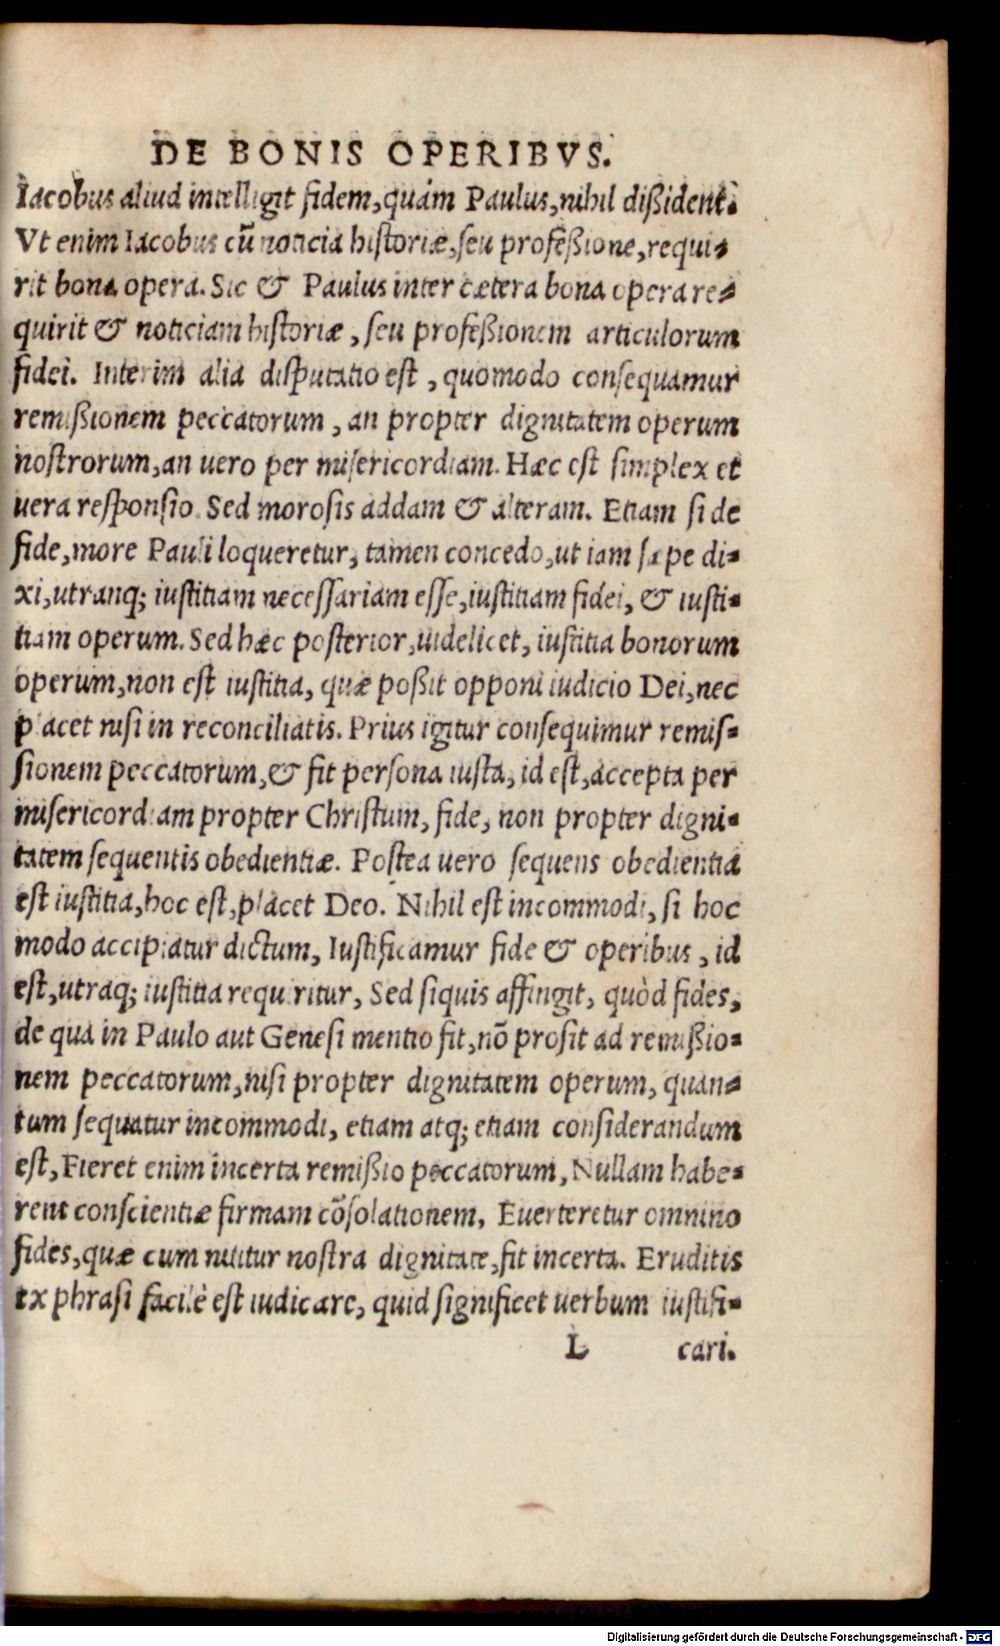 DE BONIS OPERIBVS.
Iacobus aliud intelligit fidem, quám Paulus, nihil dißident.
Vt enim Iacobus cū noticia historiæ, seu profeßione, requi-
rit bona opera. Sic & Paulus inter cætera bona opera re-
quirit & noticiam historiæ, seu profeßionem articulorum
fidei. Interim alia disputatio est, quomodo consequamur
remißionem peccatorum, an propter dignitatem operum
nostrorum, an uero per misericordiam. Hæc est simplex et
uera responsio. Sed morosis addam & alteram. Etiam si de
fide, more Pauli loqueretur, tamen concedo, ut iam sæpe di-
xi, utranq; iustitiam necessariam esse, iustitiam fidei, & iusti-
tiam operum. Sed hæc posterior, uidelicet, iustitia bonorum
operum, non est iustitia, quæ poßit opponi iudicio Dei, nec
placet nisi in reconciliatis. Prius igitur consequimur remis-
sionem peccatorum, & fit persona iusta, id est, accepta per
misericordiam propter Christum, fide, non propter digni-
tatem sequentis obedientiæ. Postea uero sequens obedientia
est iustitia, hoc est, placet Deo. Nihil est incommodi, si hoc
modo accipiatur dictum, Iustificamur fide & operibus, id
est, utraq; iustitia requiritur, Sed siquis affingit, quòd fides,
de qua in Paulo aut Genesi mentio fit, nō prosit ad remißio-
nem peccatorum, nisi propter dignitatem operum, quan-
tum sequatur incommodi, etiam atq; etiam considerandum
est, Fieret enim incerta remißio peccatorum, Nullam habe-
rent conscientiæ firmam cōsolationem, Euerteretur omnino
fides, quæ cum nititur nostra dignitate, fit incerta. Eruditis
ex phrasi facilè est iudicare, quid significet uerbum iustifi-
L cari.
Digitalisierung gefördert durch die Deutsche Forschungsgemeinschaft - DFG